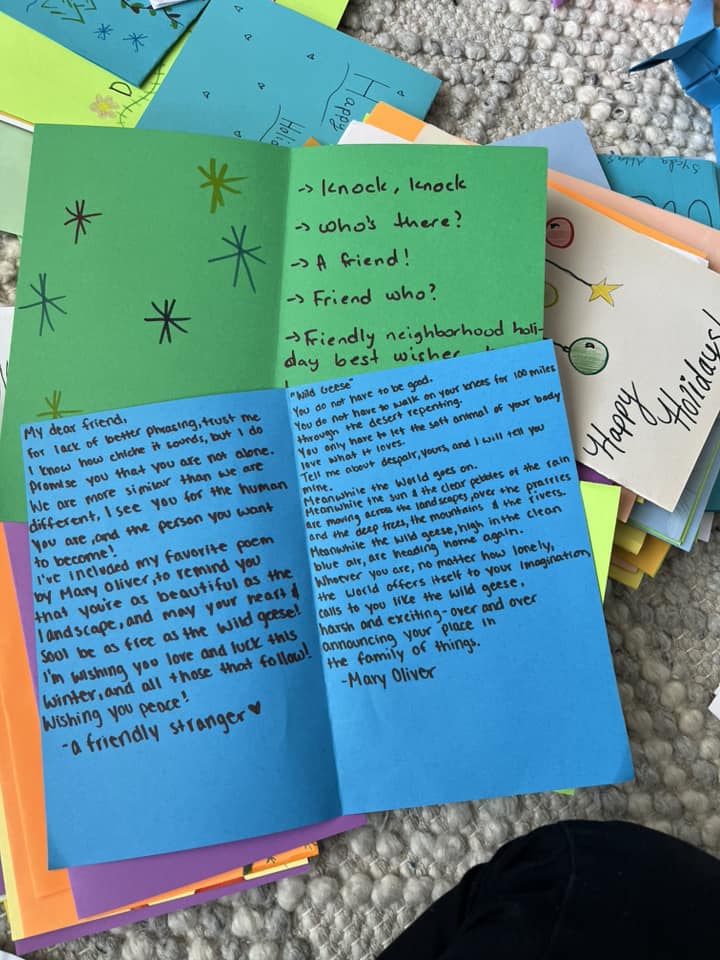 Happy
Holi
D
→ Knock, knock
→ who's there?
→ A friend!
→ Friend who?
→ Friendly neighborhood holi-
day best wisher
Happy
Holidays!
My dear friend,
for lack of better phrasing, trust me
I know how cliche it sounds, but I do
Promise you that you are not alone.
We are more similar than we are
different, I see you for the human
you are, and the person you want
to become!
I've included my favorite poem
by Mary Oliver, to remind you
that you're as beautiful as the
landscape, and may your heart &
soul be as free as the wild geese!
I'm wishing you love and luck this
winter, and all those that follow!
Wishing you peace!
-a friendly stranger ♥
"Wild Geese"
You do not have to be good.
You do not have to walk on your knees for 100 miles
through the desert repenting.
You only have to let the soft animal of your body
love what it loves.
Tell me about despair, yours, and I will tell you
mine.
Meanwhile the world goes on.
Meanwhile the sun & the clear pebbles of the rain
are moving across the landscapes, over the prairies
and the deep trees, the mountains & the rivers.
Meanwhile the wild geese, high in the clean
blue air, are heading home again.
Whoever you are, no matter how lonely,
the world offers itself to your imagination,
calls to you like the wild geese,
harsh and exciting-over and over
announcing your place in
the family of things.
-Mary Oliver